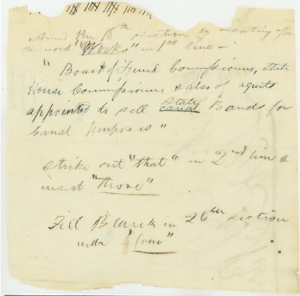 Amend the 18th section by inserting after
the word "Works" in 1st line —
"Board of Fund Commissioners, State
House Commissioners & also of agents
appointed to sell State Bonds for
Canal purposes"
Strike out "that" in 2nd line &
insert "those"
Fill Blank in 26th section
with "four"